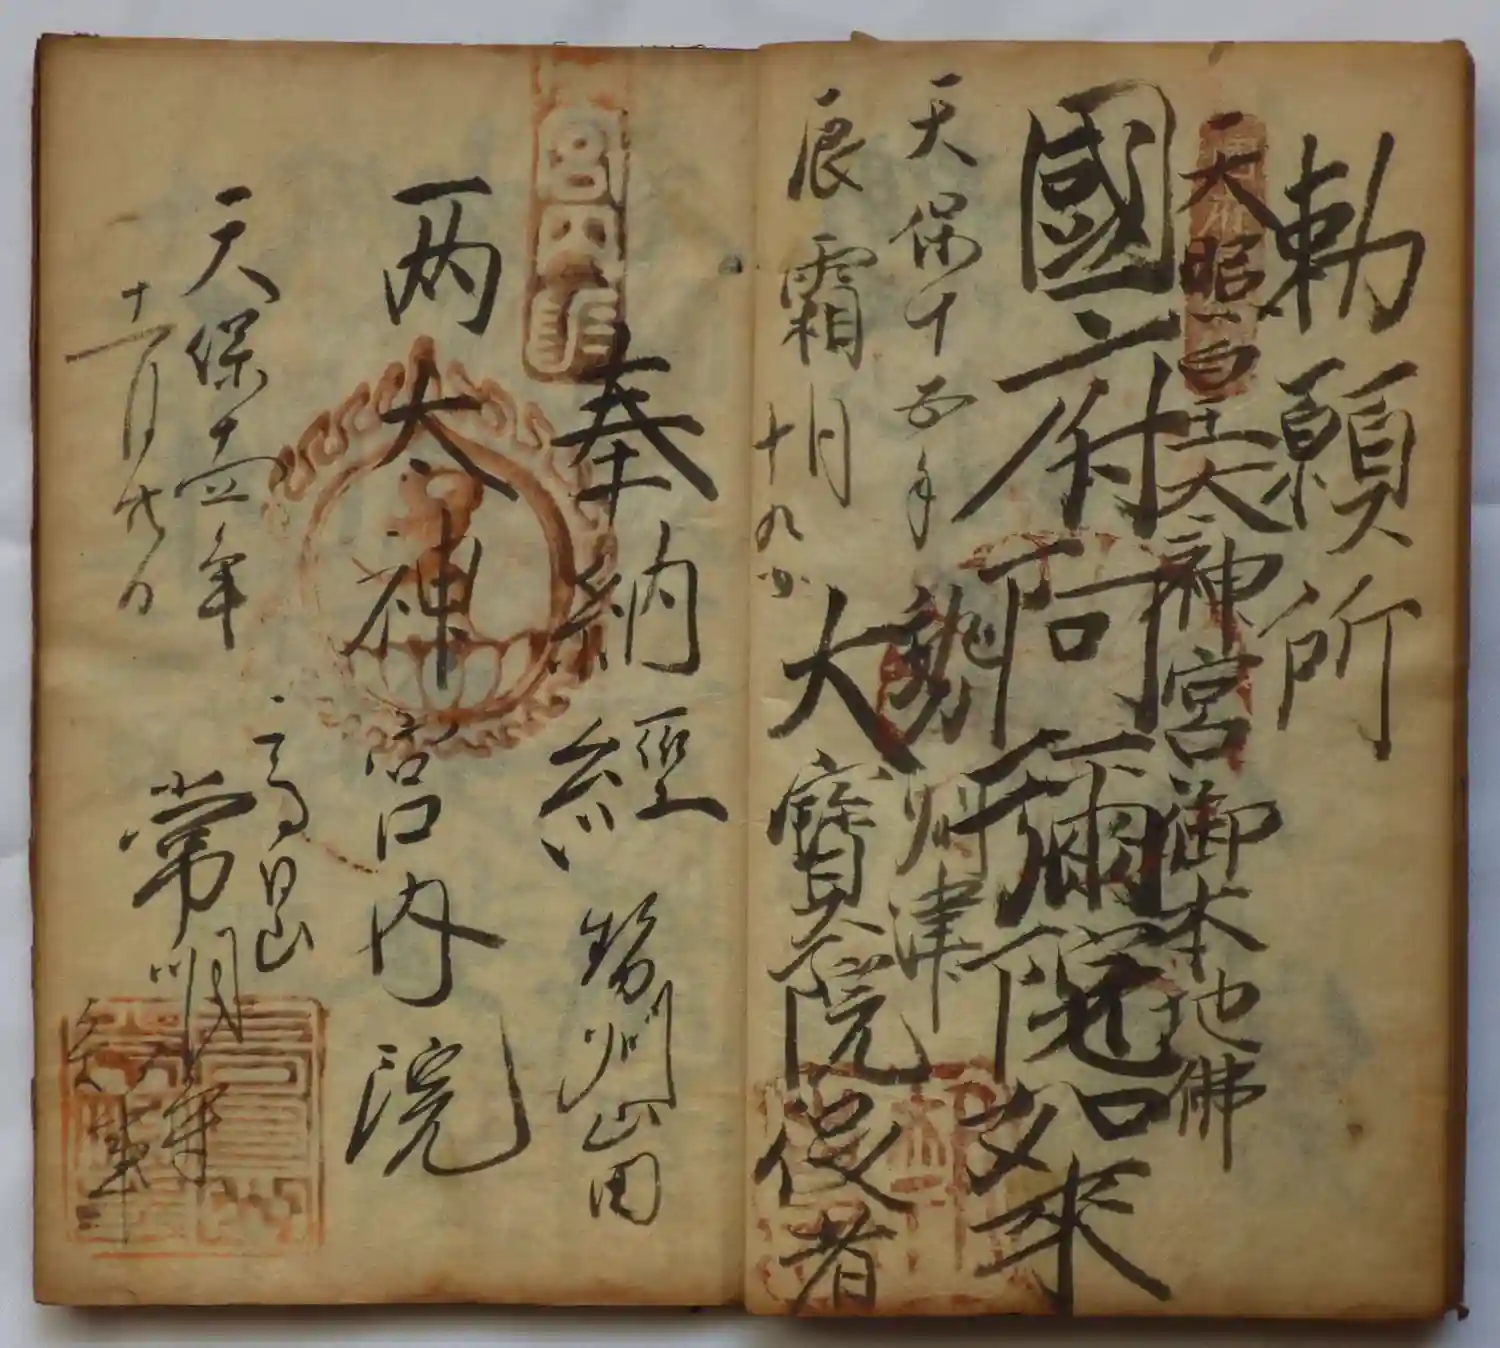 勅願所
天照皇太神宮御本地佛
國府阿彌陀如来
勢州津
大寶院役者
天保十五年
辰霜月十九日
奉納經
勢州山田
两大神宮内院
高日山
常明寺
天保十五年
十一月廿八日